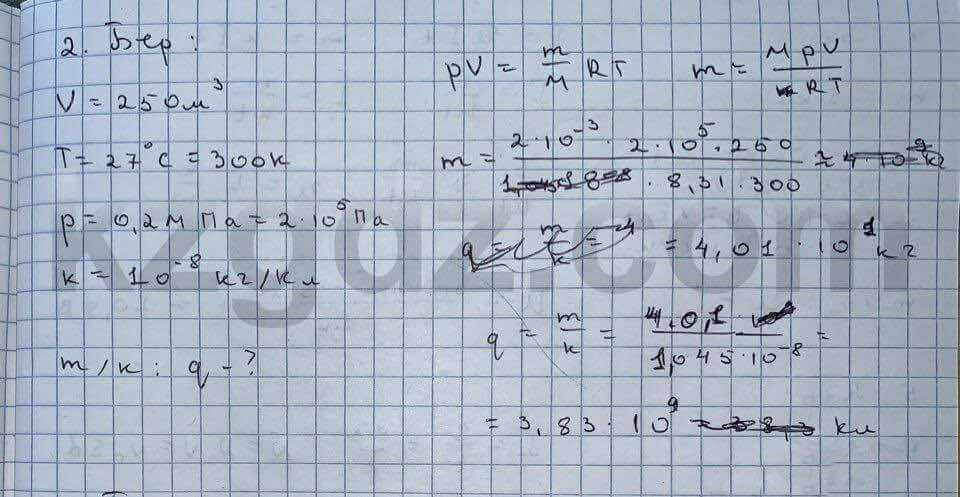 2. Бер:
V = 250м³
T = 27°C = 300К
p = 0,2МПа = 2·10⁵Па
k = 10⁻⁸ кг/Кл
m/k: q - ?
pV = m/M RT m = MpV/RT
m = 2·10⁻³·2·10⁵·250/8,31·300 ≈
= 4,01·10¹кг
q = m/k = 40,1/1,045·10⁻⁸ =
= 3,83·10⁹ Кл
kzgdz.com